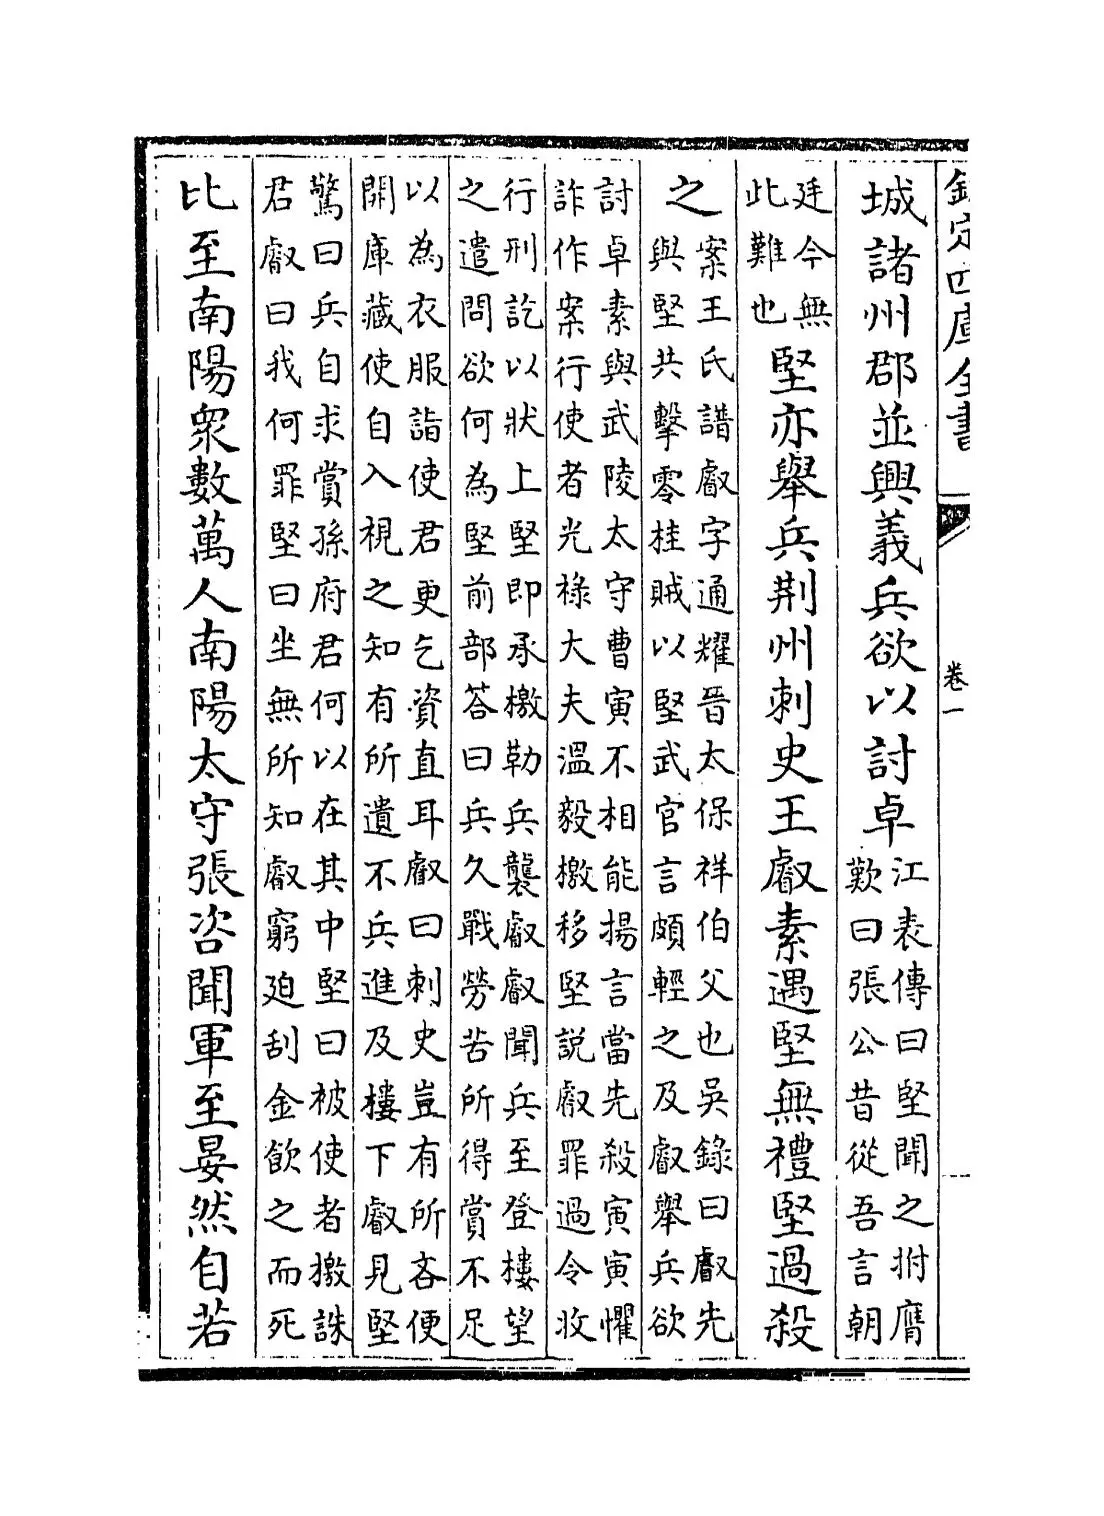 欽定四庫全書
卷一
城諸州郡並興義兵欲以討卓
江表傳曰堅聞之拊膺
歎曰張公昔從吾言朝
廷今無
此難也
堅亦舉兵荆州刺史王叡素遇堅無禮堅過殺
之
案王氏譜叡字通耀晉太保祥伯父也吳錄曰叡先
與堅共擊零桂賊以堅武官言頗輕之及叡舉兵欲
討卓素與武陵太守曹寅不相能揚言當先殺寅寅懼
詐作案行使者光祿大夫溫毅檄移堅説叡罪過令收
行刑訖以狀上堅即承檄勒兵襲叡叡聞兵至登樓望
之遣問欲何為堅前部答曰兵久戰勞苦所得賞不足
以為衣服詣使君更乞資直耳叡曰刺史豈有所吝便
開庫藏使自入視之知有所遺不兵進及樓下叡見堅
驚曰兵自求賞孫府君何以在其中堅曰被使者檄誅
君叡曰我何罪堅曰坐無所知叡窮迫刮金飲之而死
比至南陽衆數萬人南陽太守張咨聞軍至晏然自若